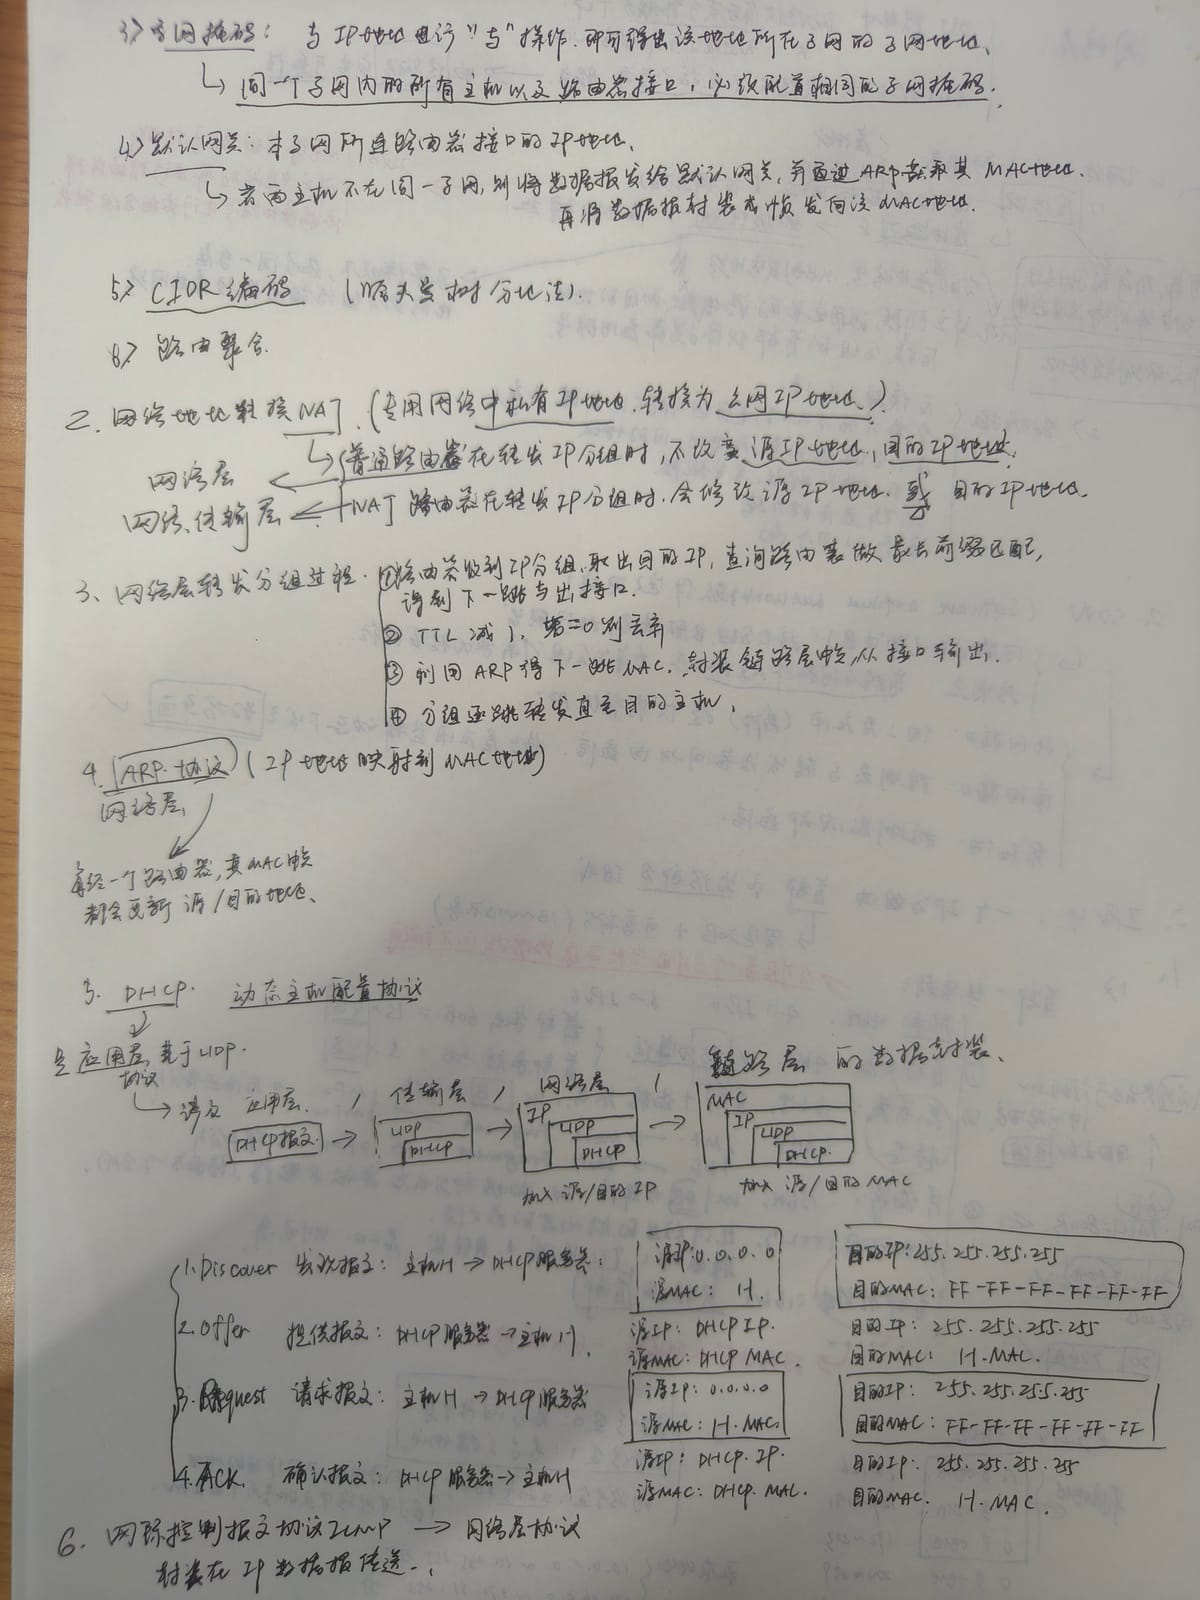 3> 子网掩码： 与IP地址进行"与"操作.即可得出该地址所在子网的子网地址、
↳ 同一个子网内的所有主机以及路由器接口，必须配置相同的子网掩码.
4.> 默认网关：本子网所连路由器接口的IP地址、
↳ 若两主机不在同一子网,则将数据报发给默认网关,并通过ARP获取其MAC地址.
再将数据报封装成帧发向该MAC地址.
5> CIDR编码 (哈夫曼树分址法).
6> 路由聚合.
2. 网络地址转换NAT. (专用网络中私有IP地址.转换为公网IP地址.)
↳ 普通路由器在转发IP分组时,不改变源IP地址,目的IP地址.
网络层
NAT路由器在转发IP分组时.会修改源IP地址.或 目的IP地址.
网络、传输层
3、网络层转发分组过程. ①路由器收到IP分组.取出目的IP, 查询路由表做最长前缀匹配,
得到下一跳与出接口.
② TTL减1, 若=0则丢弃
③ 利用ARP得下一跳MAC.封装链路层帧,从接口输出.
④ 分组逐跳转发直至目的主机.
4. ARP.协议 (IP地址映射到MAC地址)
网络层
每经一个路由器,其MAC帧
都会更新源/目的地址、
5. DHCP. 动态主机配置协议
是应用层 基于UDP.
协议
链路层 的数据封装、
↳ 请求 应用层. , 传输层 , 网络层 ,
DHCP报文. → UDP DHCP → IP UDP DHCP → MAC IP UDP DHCP.
加入源/目的IP 加入源/目的MAC
1.Discover 发现报文：主机H → DHCP服务器: 源IP:0.0.0.0 目的IP:255.255.255.255
源MAC: H. 目的MAC: FF-FF-FF-FF-FF-FF
2.Offer 提供报文：DHCP服务器→主机H. 源IP: DHCP IP. 目的IP: 255.255.255.255
源MAC: DHCP MAC. 目的MAC: H.MAC.
3.Request 请求报文：主机H → DHCP服务器 源IP: 0.0.0.0 目的IP: 255.255.255.255
源MAC: H.MAC. 目的MAC: FF-FF-FF-FF-FF-FF
4.ACK. 确认报文：DHCP服务器→主机H 源IP: DHCP.IP. 目的IP: 255.255.255.255
源MAC: DHCP.MAC. 目的MAC. H.MAC.
6. 网际控制报文协议ICMP → 网络层协议
封装在IP数据报传送.